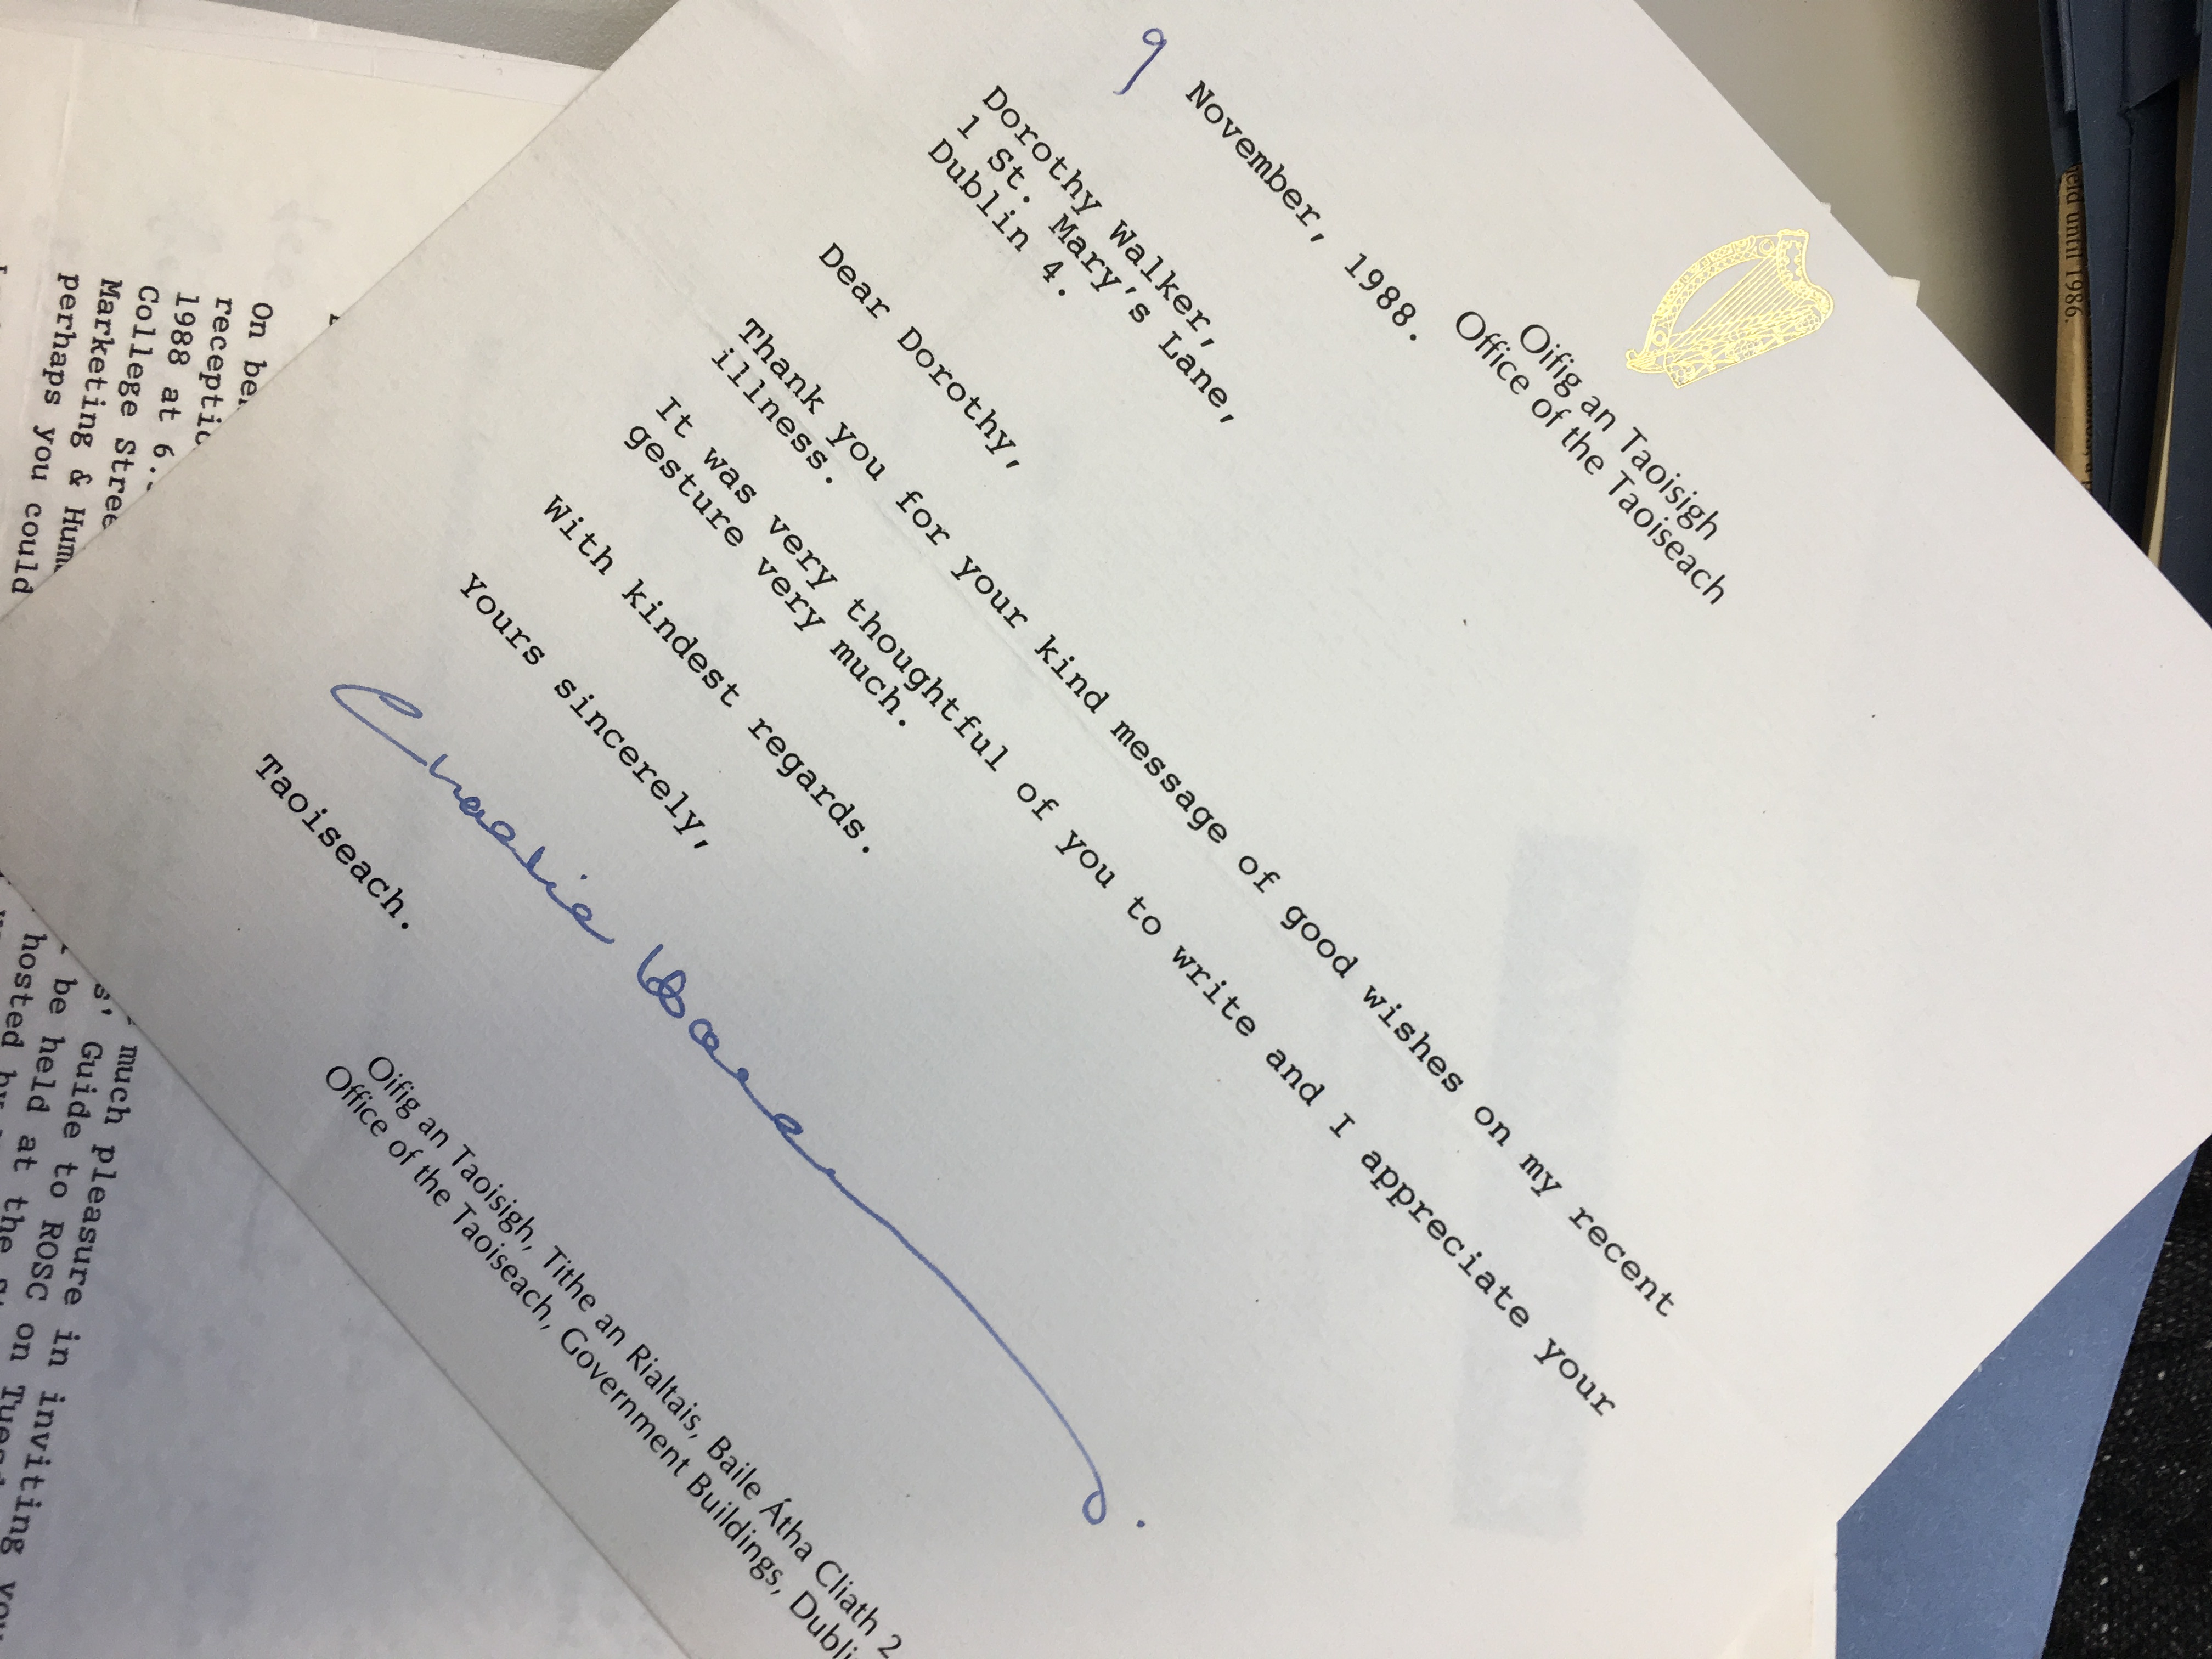 Oifig an Taoisigh
Office of the Taoiseach
9 November, 1988.
Dorothy Walker,
1 St. Mary's Lane,
Dublin 4.
Dear Dorothy,
Thank you for your kind message of good wishes on my recent
illness.
It was very thoughtful of you to write and I appreciate your
gesture very much.
With kindest regards.
Yours sincerely,
Charlie
Taoiseach.
Oifig an Taoisigh, Tithe an Rialtais, Baile Átha Cliath 2
Office of the Taoiseach, Government Buildings,
On
1988 at 6.
College
Marketing &
perhaps you could
much pleasure in inviting
Guide to ROSC on
be held at the
hosted
until 1986.